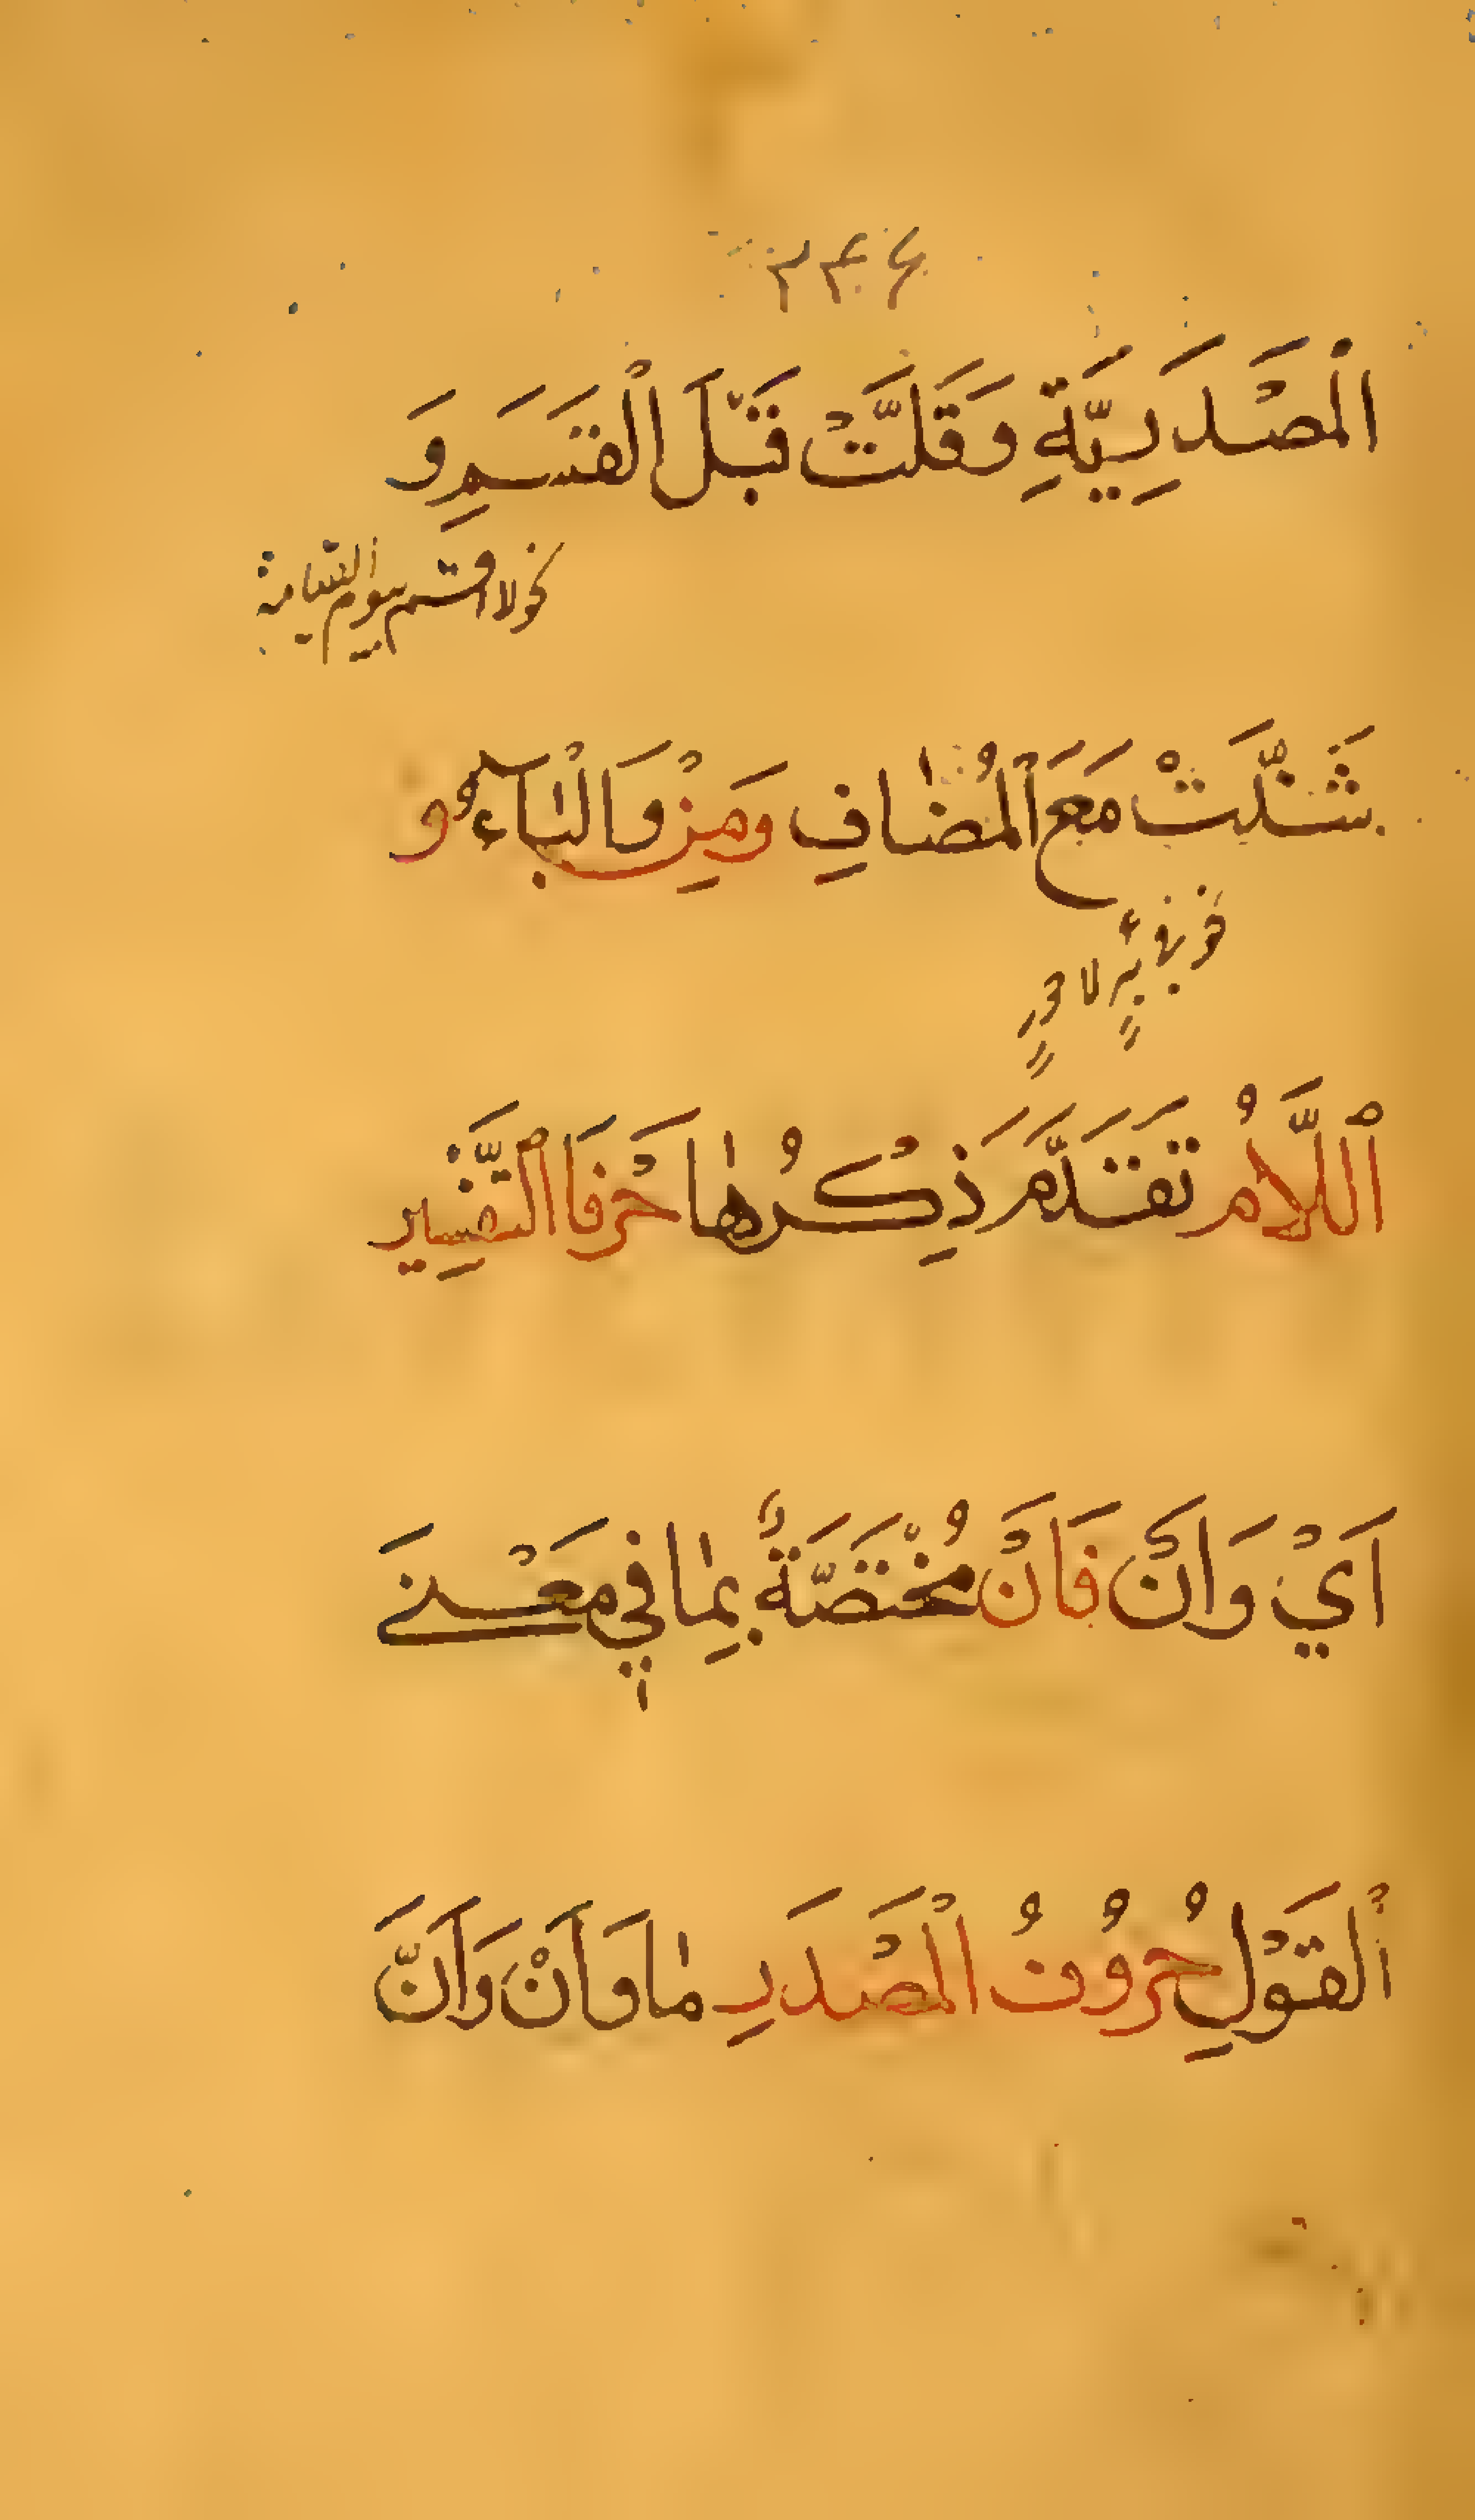 ٱلْمَصْدَرِيَّةِ وَقَلَّتْ قَبْلَ الْقَسَمِ وَ
نحو لا اقسم بيوم القيامة
شَذَّتْ مَعَ الْمُضَافِ وَمِنْ وَالْبَآءُ وَ
نحو في بئر لا حور
ٱللَّامُ تَقَدَّمَ ذِكْرُهَا حَرْفَا التَّفْسِيرِ
اَيْ وَاَنْ فَاَنْ مُخْتَصَّةٌ بِمَا فِي مَعْنَى
ٱلْقَوْلِ حُرُوفُ الْمَصْدَرِ مَا وَاَنْ وَاَنَّ